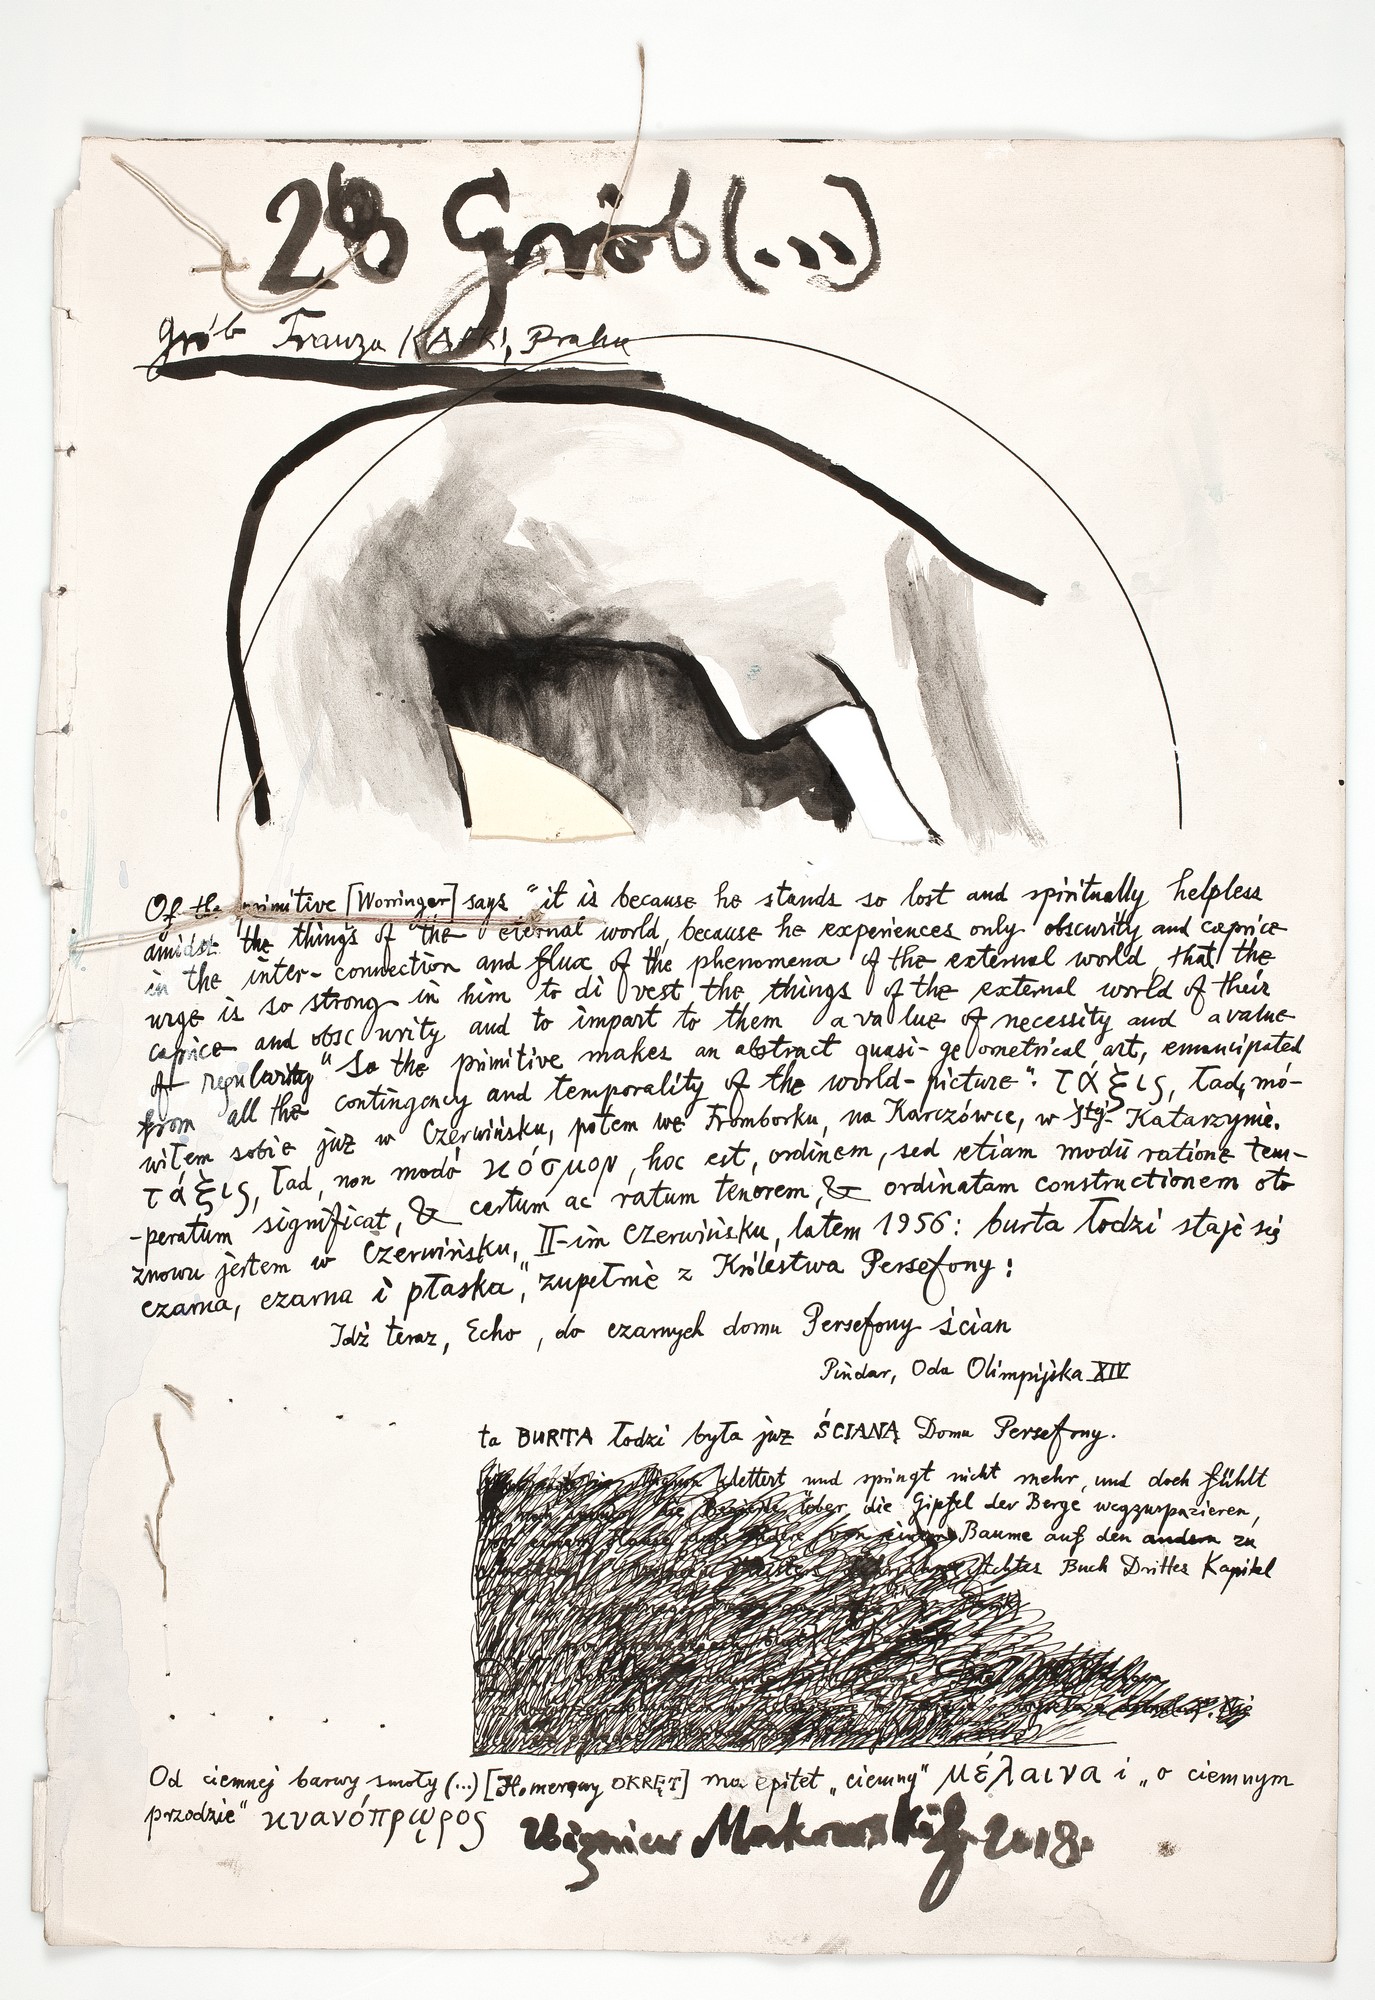 28 Grób (...)
grób Franza KAFKI, Praha
Of the primitive [Worringer] says "it is because he stands so lost and spiritually helpless
amidst the things of the external world, because he experiences only obscurity and caprice
in the inter-connection and flux of the phenomena of the external world that the
urge is so strong in him to divest the things of the external world of their
caprice and obscurity and to impart to them a value of necessity and a value
of regularity" So the primitive makes an abstract quasi-geometrical art, emancipated
from all the contingency and temporality of the world-picture": τάξις, ład, mó-
wiłem sobie już w Czerwińsku, potem we Fromborku, na Karczówce, w Stej Katarzynie.
τάξις, ład, non modo κόσμον, hoc est, ordinem, sed etiam modū ratione tem-
-peratum significat, & certum ac ratum tenorem, & ordinatam constructionem oto
znowu jestem w Czerwińsku, II-im Czerwińsku, latem 1956: burta łodzi staje się
czarna, czarna i płaska", zupełnie z Królestwa Persefony:
Idź teraz, Echo, do czarnych domu Persefony ścian
Pindar, Oda Olimpijska XIV
ta BURTA łodzi była już ŚCIANĄ Domu Persefony.
Mignon klettert und springt nicht mehr, und doch fühlt
sie noch immer die Begierde, über die Gipfel der Berge wegzuspazieren,
von einem Hause aufs andere, von einem Baume auf den andern zu
Meisters Lehrjahre Achtes Buch Drittes Kapitel
Od ciemnej barwy smoły (...) [Homerowy OKRĘT] ma epitet „ciemny" μέλαινα i „o ciemnym
przodzie" κυανόπρῳρος
Zbigniew Makowski 2018.